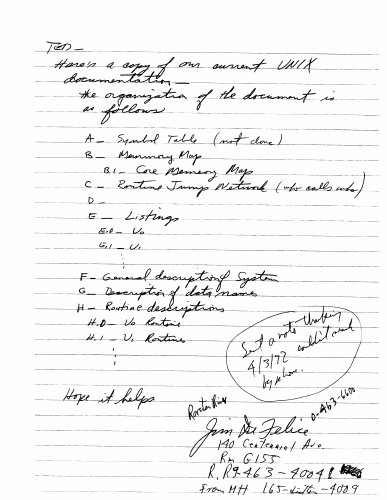 TED—
Here's a copy of our current UNIX
documentation —
the organization of the document is
as follows
A — Symbol Table (not done)
B — Memory Map
B.1 — Core Memory Map
C — Routine Jump Network (who calls who)
D —
E — Listings
E.0 — U0
E.1 — U1
F — General description of System
G — Description of data names
H — Routine descriptions
H.0 — U0 Routine
H.1 — U1 Routines
Sent a note thanking
4/3/72 couldn't reach
by phone.
Hope it helps
0-463-6600
Jim De Felice
140 Centennial Ave.
Rm G155
R.R 9-463-4004
From MH 165-4009